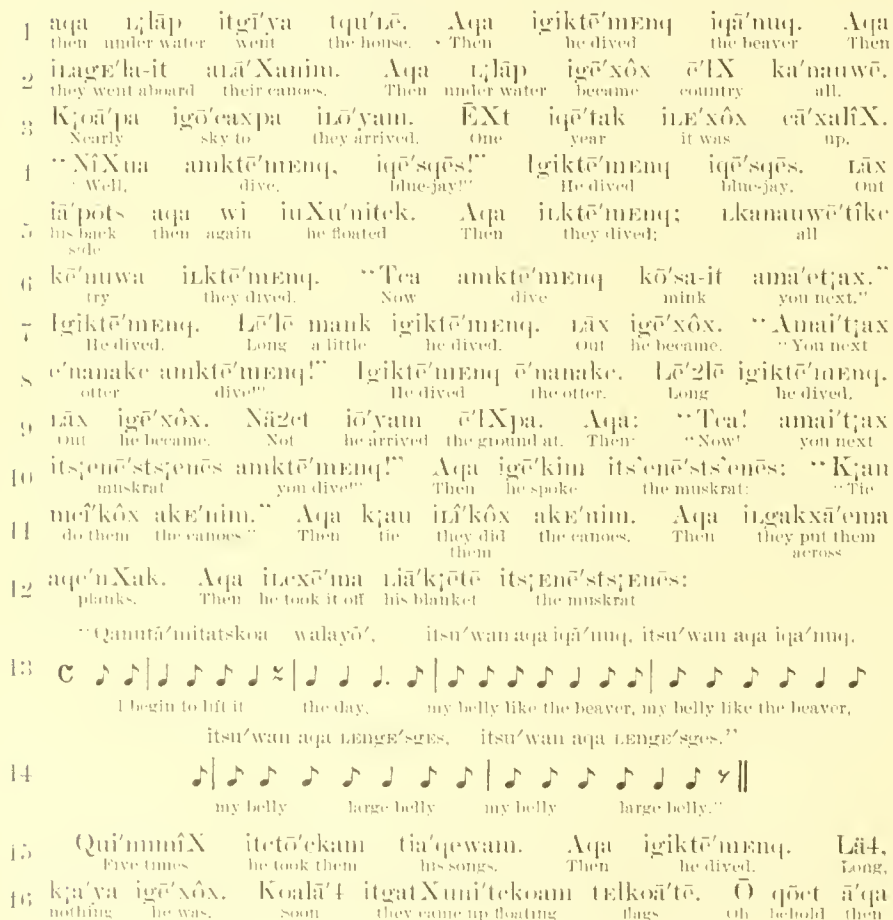 1 aqa L¡lāp itgī′ya tqu′Lē. Aqa igiktē′mEnq iqā′nuq. Aqa
then under water went the house. Then he dived the beaver Then
2 iLagE′la-it aLā′Xanim. Aqa L¡lāp igē′xôx ē′lX ka′nauwē.
they went aboard their canoes. Then under water became country all.
3 K¡oā′pa igō′caxpa iLō′yam. ĒXt iqē′tak iLE′xôx cā′xalîX.
Nearly sky to they arrived. One year it was up.
4 “NîXua amktē′mEnq, iqē′sqēs!” Igiktē′mEnq iqē′sqēs. Lāx
“Well, dive, blue-jay!” He dived blue-jay. Out
5 iā′pōts aqa wi iuXu′nitck. Aqa iLktē′mEnq; Lkanauwē′tîkc
his back then again he floated Then they dived; all
side
6 kē′nuwa iLktē′mEnq. “Tca amktē′mEnq kō′sa-it ama′et¡ax.”
try they dived. Now dive mink you next.”
7 Igiktē′mEnq. Lē′lē mank igiktē′mEnq. Lāx igē′xôx. “Amai′t¡ax
He dived. Long a little he dived. Out he became. “You next
8 e′nanake amktē′mEnq!” Igiktē′mEnq ē′nanake. Lē′2lē igiktē′mEnq.
otter dive!” He dived the otter. Long he dived.
9 Lāx igē′xôx. Nä2ct iō′yam ē′lXpa. Aqa: “Tca! amai′t¡ax
Out he became. Not he arrived the ground at. Then: “Now! you next
10 its¡enē′sts¡enēs amktē′mEnq!” Aqa igē′kim its‘enē′sts‘enēs: “K¡au
muskrat you dive!” Then he spoke the muskrat: “Tie
11 mcî′kôx akE′nim.” Aqa k¡au iLî′kôx akE′nim. Aqa iLgakxā′ema
do them the canoes.” Then tie they did the canoes. Then they put them
them across
12 aqe′nXak. Aqa iLexē′ma Liā′k¡ētē its¡Enē′sts¡Enēs:
planks. Then he took it off his blanket the muskrat
“Qanutā′mitatskoa walayō′, itsu′wan aqa iqā′nuq, itsu′wan aqa iqa′nuq,
13
I begin to lift it the day, my belly like the beaver, my belly like the beaver,
itsu′wan aqa LEngE′sgEs, itsu′wan aqa LEngE′sges.”
14
my belly large belly my belly large belly.”
15 Qui′nmmîX itctō′ckam tia′qewam. Aqa igiktē′mEnq. Lä4,
Five times he took them his songs. Then he dived. Long,
16 k¡a′ya igē′xôx. Koalā′4 itgatXuni′tckoam tElkoā′tē. Ō qōct ā′qa
nothing he was. Soon they came up floating flags Oh behold then